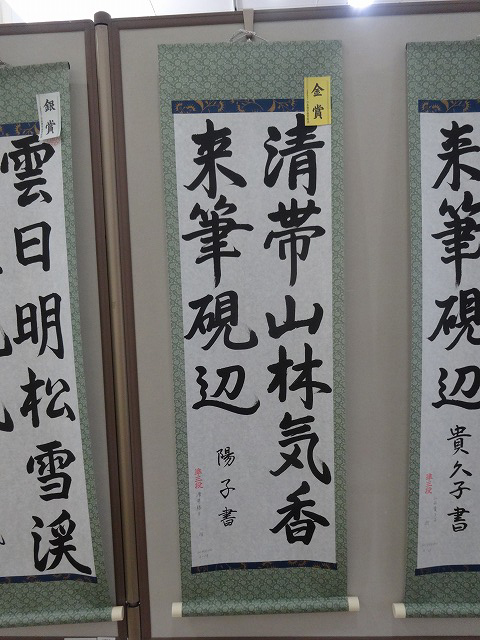 金賞
清帯山林気香
来筆硯辺
陽子書
準五段
来筆硯辺
貴久子書
準五段
銀賞
雲日明松雪渓